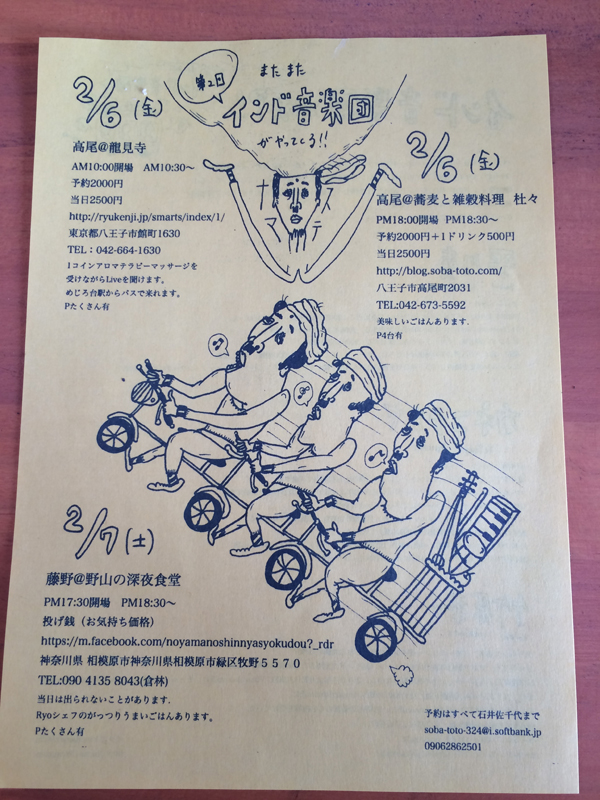 第2回
またまた
インド音楽団
がやってくる!!
ナマステ
2/6(金)
高尾@龍見寺
AM10:00開場　AM10:30〜
予約2000円
当日2500円
http://ryukenji.jp/smarts/index/1/
東京都八王子市館町1630
TEL：042-664-1630
1コインアロマテラピーマッサージを
受けながらLiveを聞けます。
めじろ台駅からバスで来れます。
Pたくさん有
2/6(金)
高尾@蕎麦と雑穀料理　杜々
PM18:00開場　PM18:30〜
予約2000円＋1ドリンク500円
当日2500円
http://blog.soba-toto.com/
八王子市高尾町2031
TEL:042-673-5592
美味しいごはんあります.
P4台有
2/7(土)
藤野@野山の深夜食堂
PM17:30開場　PM18:30〜
投げ銭（お気持ち価格）
https://m.facebook.com/noyamanoshinnyasyokudou?_rdr
神奈川県 相模原市神奈川県相模原市緑区牧野５５７０
TEL:090 4135 8043(倉林)
当日は出られないことがあります.
Ryoシェフのがっつりうまいごはんあります。
Pたくさん有
予約はすべて石井佐千代まで
soba-toto-324@i.softbank.jp
09062862501